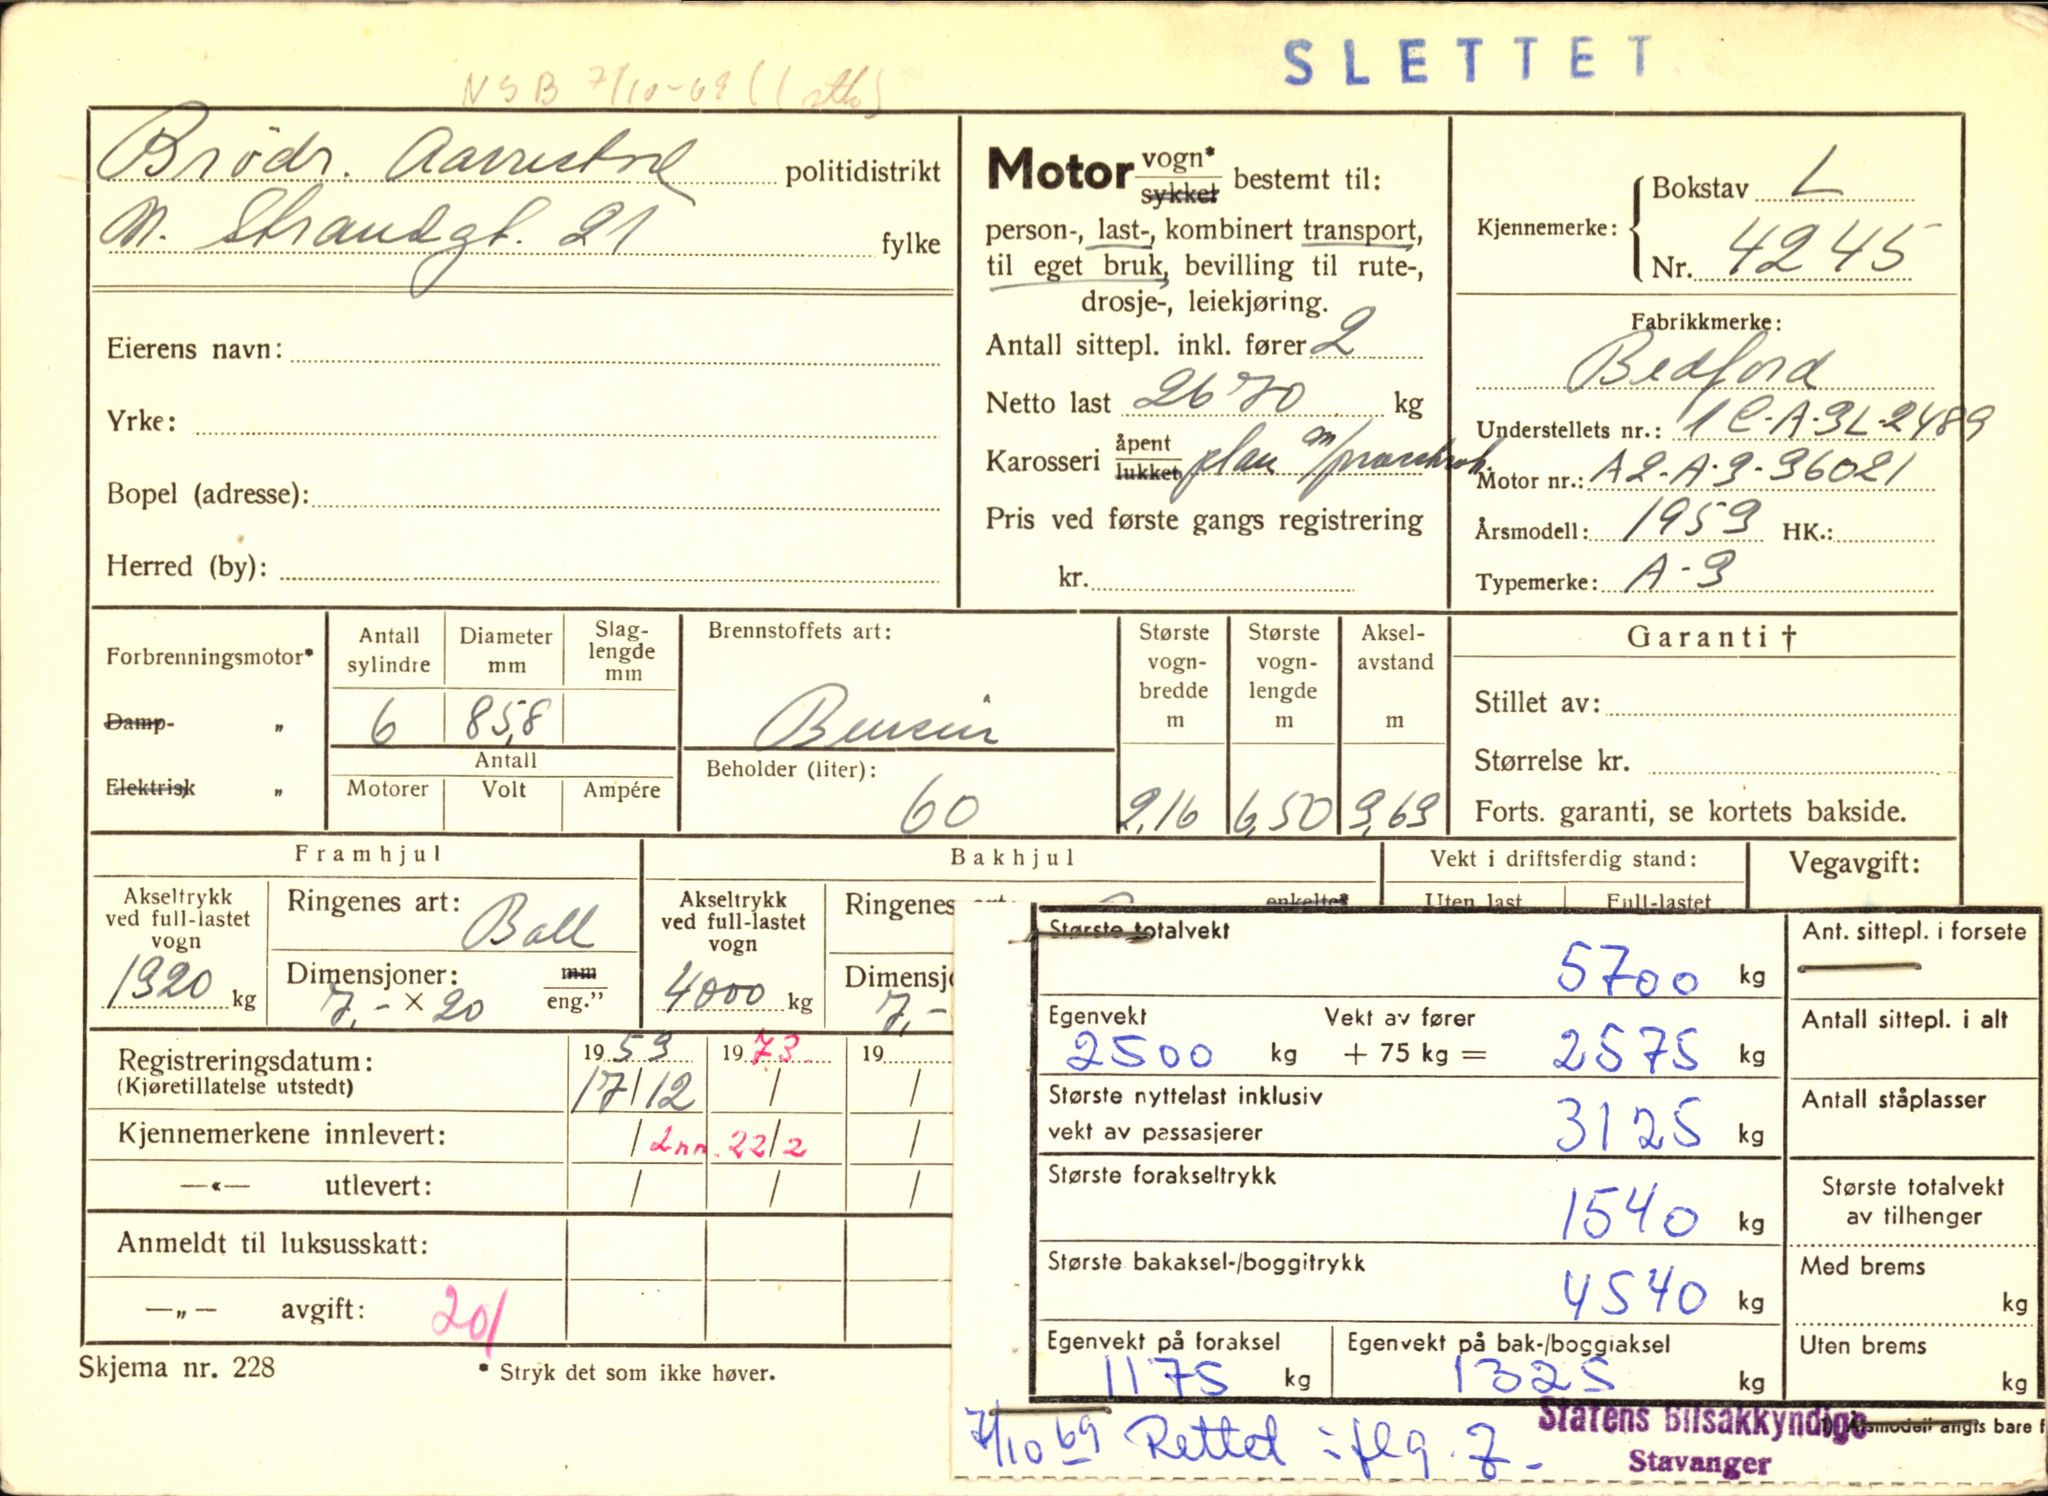 SLETTET
NSB 7/10-69
Brødr. Aarrestad politidistrikt
N. Strandgt. 21 fylke
Eierens navn:
Yrke:
Bopel (adresse):
Herred (by):
Motor vogn* sykkel bestemt til:
person-, last-, kombinert transport,
til eget bruk, bevilling til rute-,
drosje-, leiekjøring.
Antall sittepl. inkl. fører 2
Netto last 2670 kg
Karosseri åpent lukket plan m/
Pris ved første gangs registrering
kr.
Kjennemerke: Bokstav L
Nr. 4245
Fabrikkmerke:
Bedford
Understellets nr.: 1C-A-3L-2489
Motor nr.: A2-A-3-36021
Årsmodell: 1953 HK.:
Typemerke: A-3
Forbrenningsmotor*
Damp- „
Elektrisk „
Antall sylindre
Diameter mm
Slag-lengde mm
6 85,8
Antall
Motorer Volt Ampére
Brennstoffets art:
Bensin
Beholder (liter):
60
Største vogn-bredde m
Største vogn-lengde m
Aksel-avstand m
2,16 6,50 3,63
Garanti †
Stillet av:
Størrelse kr.
Forts. garanti, se kortets bakside.
Framhjul
Akseltrykk ved full-lastet vogn
1320 kg
Ringenes art: Ball
Dimensjoner: mm eng."
7,- × 20
Bakhjul
Akseltrykk ved full-lastet vogn
4000 kg
Ringenes art: enkelte*
Dimensj
7,-
Vekt i driftsferdig stand:
Uten last Full-lastet
Vegavgift:
Registreringsdatum: 1953 1973 19
(Kjøretillatelse utstedt) 17/12 / /
Kjennemerkene innlevert: / Inn. 22/2 /
—«— utlevert: / / /
Anmeldt til luksusskatt:
—„— avgift: 20/
Skjema nr. 228
* Stryk det som ikke høver.
Største totalvekt
5700 kg
Egenvekt 2500 kg
Vekt av fører + 75 kg = 2575 kg
Største nyttelast inklusiv
vekt av passasjerer 3125 kg
Største forakseltrykk
1540 kg
Største bakaksel-/boggitrykk
4540 kg
Egenvekt på foraksel
1175 kg
Egenvekt på bak-/boggiaksel
1325 kg
Ant. sittepl. i forsete
Antall sittepl. i alt
Antall ståplasser
Største totalvekt
av tilhenger
Med brems
kg
Uten brems
kg
7/10 69 Rettet iflg. 7.-
Statens Bilsakkyndige
Stavanger
1) Årsmodell angis bare f